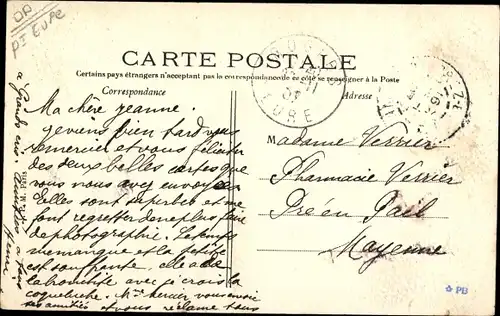 DD
PT EURE
CARTE POSTALE
Certains pays étrangers n'acceptant pas la correspondance de ce côté se renseigner à la Poste
Correspondance
Adresse
EURE
Ma chère Jeanne.
Je viens bien tard vous
remercier et vous féliciter
des deux belles cartes que
vous nous avez envoyées
Elles sont superbes et me
font regretter de ne plus faire
de photographie. Le temps
me manque et la petite
est souffrante. elle a de
la bronchite avec je crois la
coqueluche. Mme Mercier vous envoie
ses amitiés et vous réclame tous
Madame Verrier
Pharmacie Verrier
Pré en Pail
Mayenne
PB